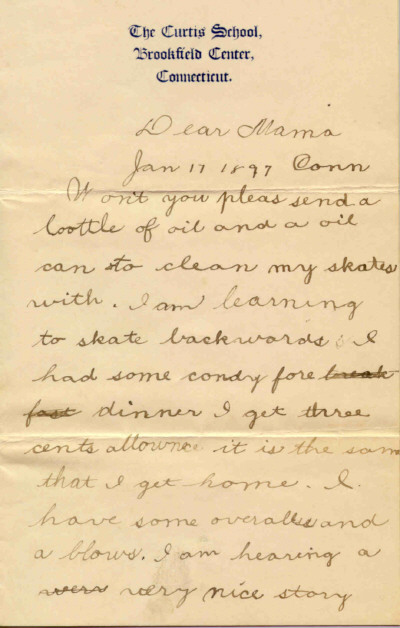 The Curtis School,
Brookfield Center,
Connecticut.
Dear Mama
Jan 17 1897 Conn
Wont you pleas send a
boottle of oil and a oil
can to clean my skates
with. I am learning
to skate backwards I
had some condy fore break
fast dinner I get three
cents allownce it is the sam
that I get home. I.
have some overalls and
a blows. I am hearing a
very very nice story